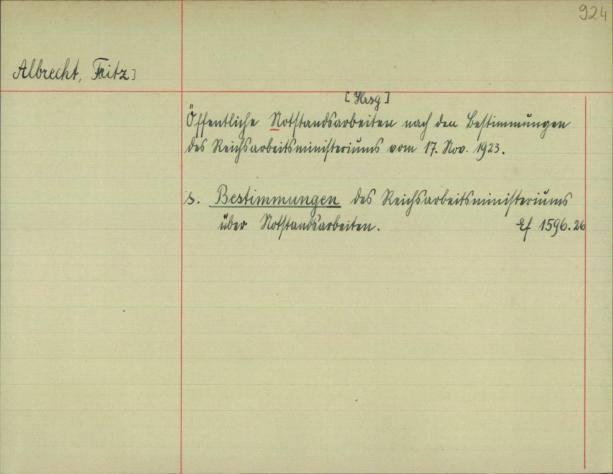 924
Albrecht, Fritz]
[Hrsg]
Öffentliche Notstandsarbeiten nach den Bestimmungen
des Reichsarbeitsministeriums vom 17. Nov. 1923.
s. Bestimmungen des Reichsarbeitsministeriums
über Notstandsarbeiten. Ef 1596.26